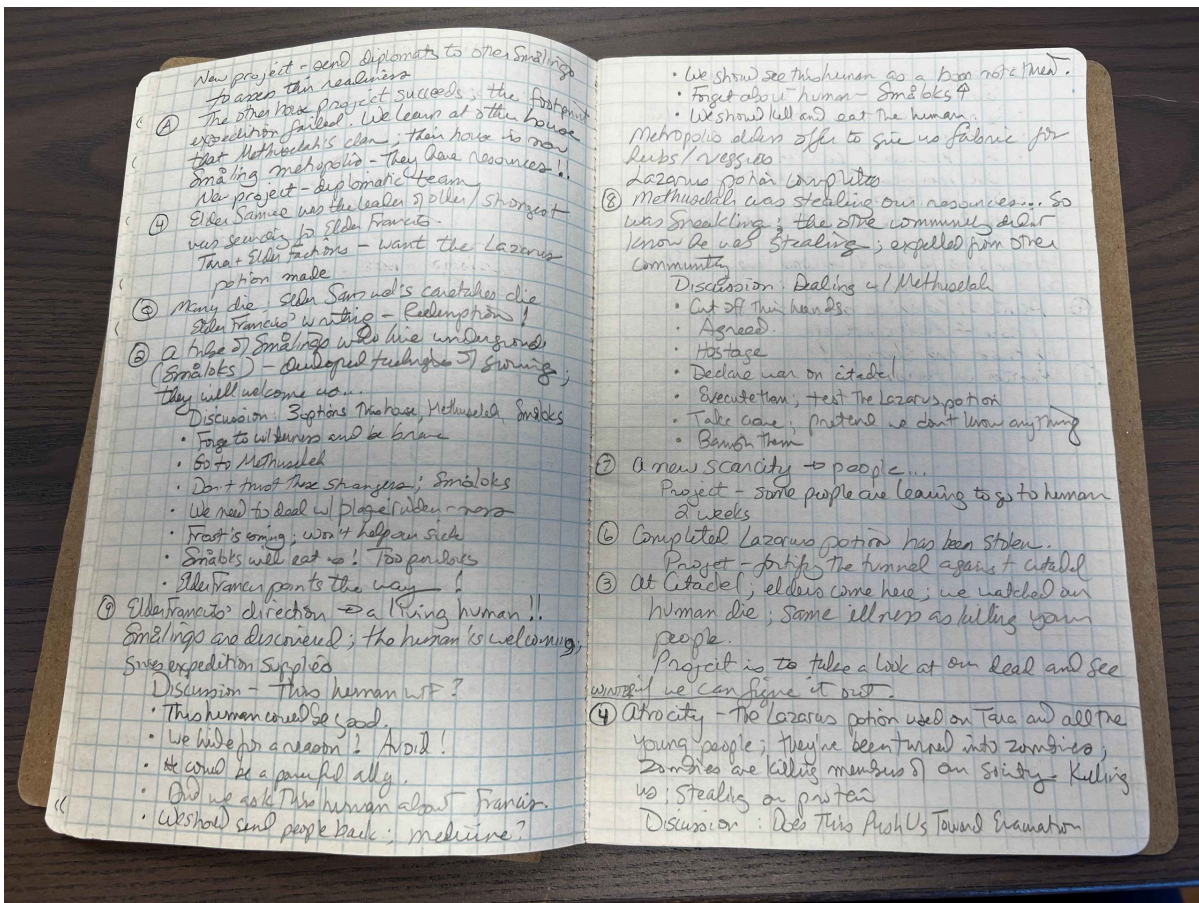 New project - send diplomats to other Smålings
to assess their readiness
Ⓐ The other house project succeeds; the footprint
expedition failed. We learn at other house
that Methuselah's clan; their house is now
Småling metropolis - They have resources!!
New project - diplomatic team
④ Elder Samuel was the leader of older/strongest
was security to Elder Francis.
Tara + Elder factions - want the Lazarus
potion made
Ⓠ Many die, elder Samuel's caretakers die
Elder Francis' writing - Redemption!
② A tribe of Smålings who live underground
(Småloks) - developed techniques of growing;
they will welcome us...
Discussion: 3 options This house, Methuselah, Småloks
• Forge to wilderness and be brave
• Go to Methuselah
• Don't trust these strangers; Småloks
• We need to deal w/ plague
• Frost is coming; won't help our sick
• Småloks will eat us! Too perilous
• Elder Francis points the way!
⑨ Elder Francis' direction → a living human!!
Smålings are discovered; the human is welcoming;
gives expedition supplies
Discussion - This human WTF?
• This human could be good.
• We hide for a reason! Avoid!
• He could be a powerful ally.
• Did we ask this human about Francis.
• We should send people back; medicine?
• We should see this human as a boon not a threat.
• Forget about human - Småloks
• We should kill and eat the human.
Metropolis elders offer to give us fabric for
herbs/veggies
Lazarus potion completes
⑧ Methuselah was stealing our resources... So
was Sneakling; the other community didn't
know he was stealing; expelled from other
community
Discussion: Dealing w/ Methuselah
• Cut off their hands.
• Agreed.
• Hostage
• Declare war on citadel
• Execute them; test the Lazarus potion
• Take care; pretend we don't know anything
• Banish them
⑦ A new scarcity → people...
Project - some people are leaving to go to human
2 weeks
⑥ Completed Lazarus potion has been stolen.
Project - fortify the tunnel against citadel
③ At Citadel; elders come here; we watched our
human die; same illness as killing your
people.
Project is to take a look at our dead and see
if we can figure it out.
WINTER
④ Atrocity - The Lazarus potion used on Tara and all the
young people; they've been turned into zombies;
Zombies are killing members of our society. Killing
us; stealing our protein
Discussion: Does This Push Us Toward